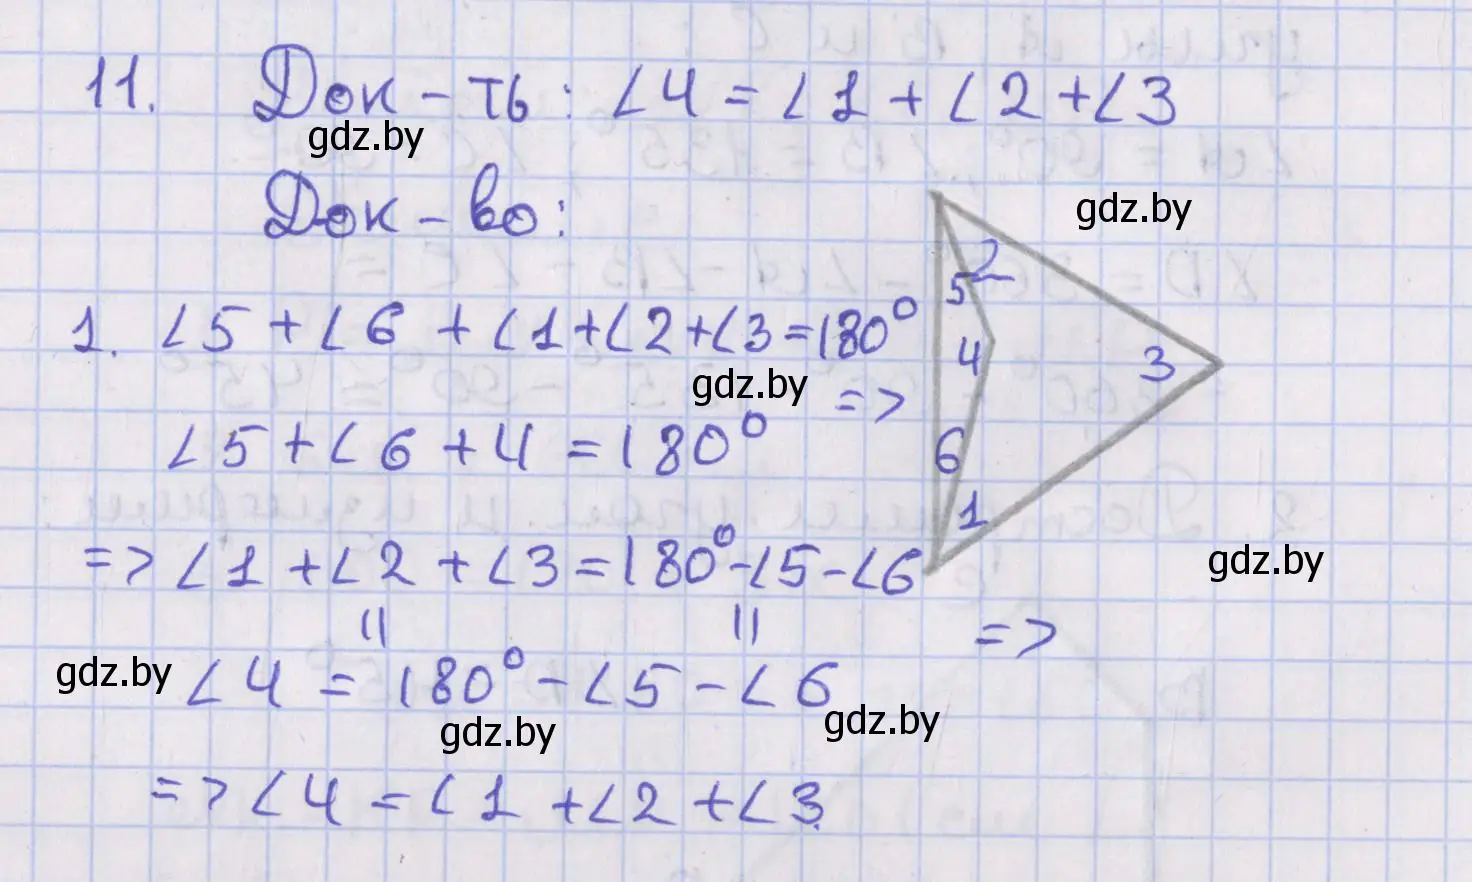 11. Док-ть: ∠4 = ∠1 + ∠2 + ∠3
gdz.by
Док-во:
gdz.by
1. ∠5 + ∠6 + ∠1 + ∠2 + ∠3 = 180°
gdz.by
=>
∠5 + ∠6 + 4 = 180°
2
5
4
3
6
1
=> ∠1 + ∠2 + ∠3 = 180° - ∠5 - ∠6
gdz.by
=>
gdz.by
∠4 = 180° - ∠5 - ∠6
gdz.by
gdz.by
=> ∠4 = ∠1 + ∠2 + ∠3.